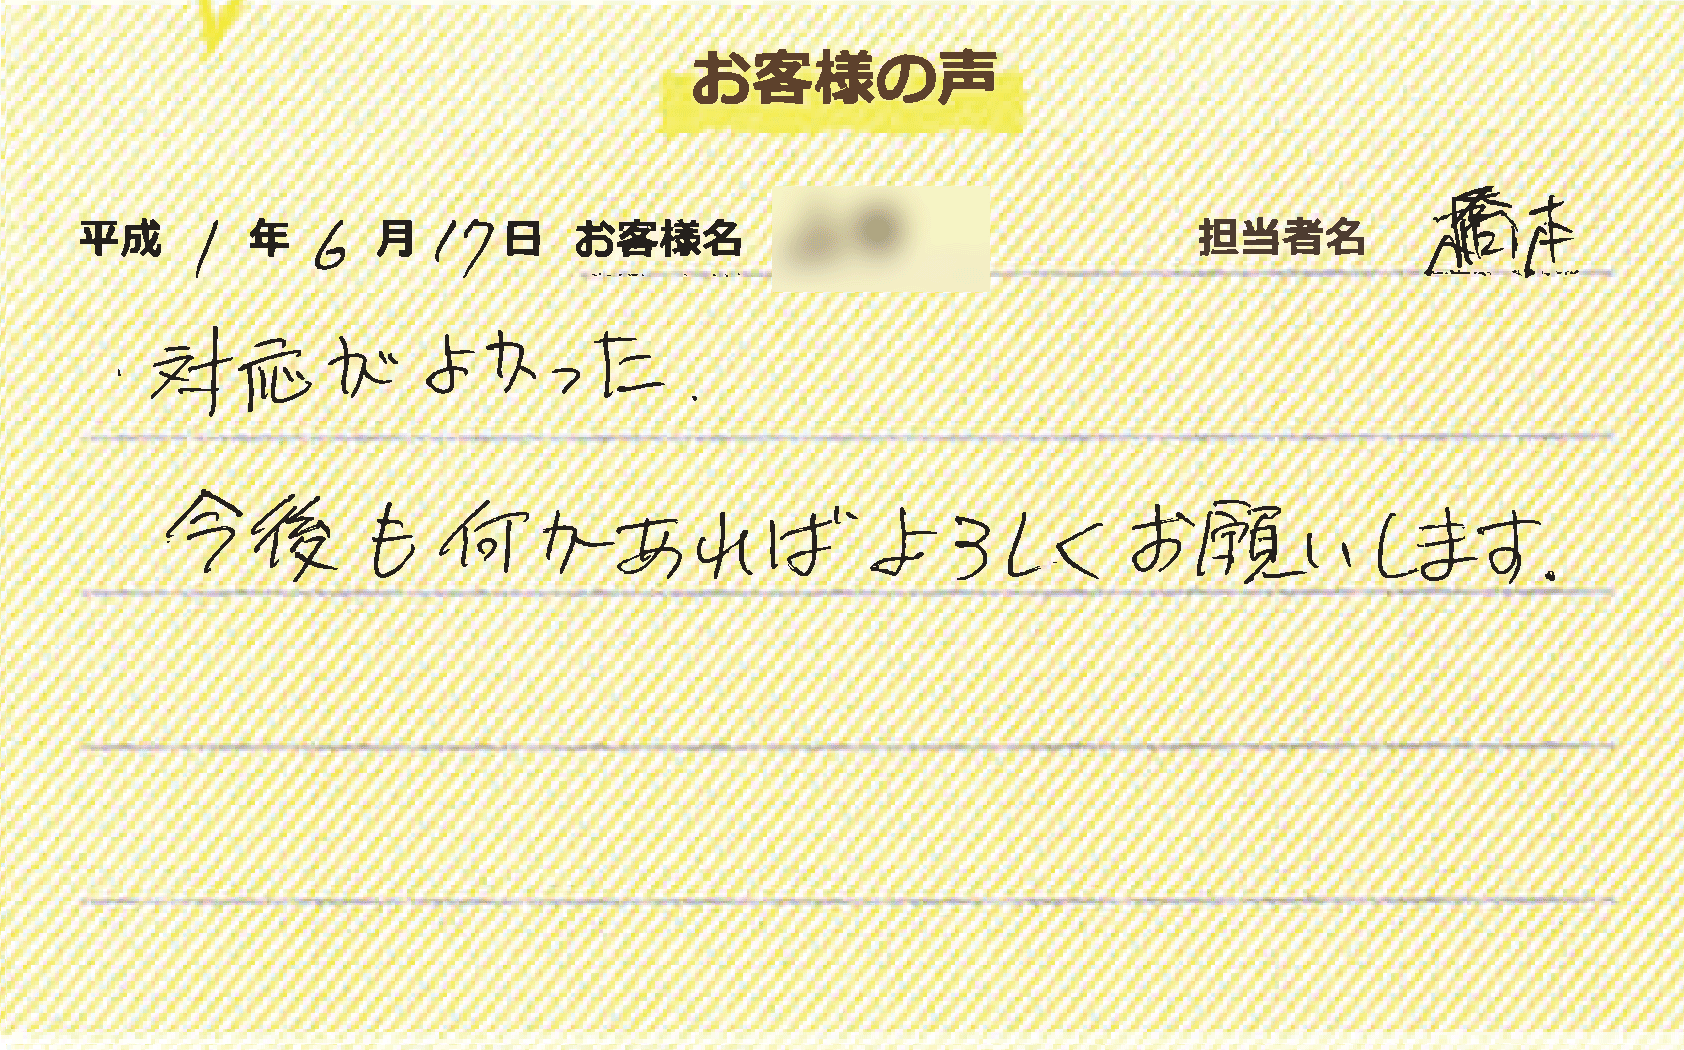 お客様の声
平成 1 年 6 月 17 日 お客様名 担当者名 橋本
・対応がよかった.
今後も何かあればよろしくお願いします.